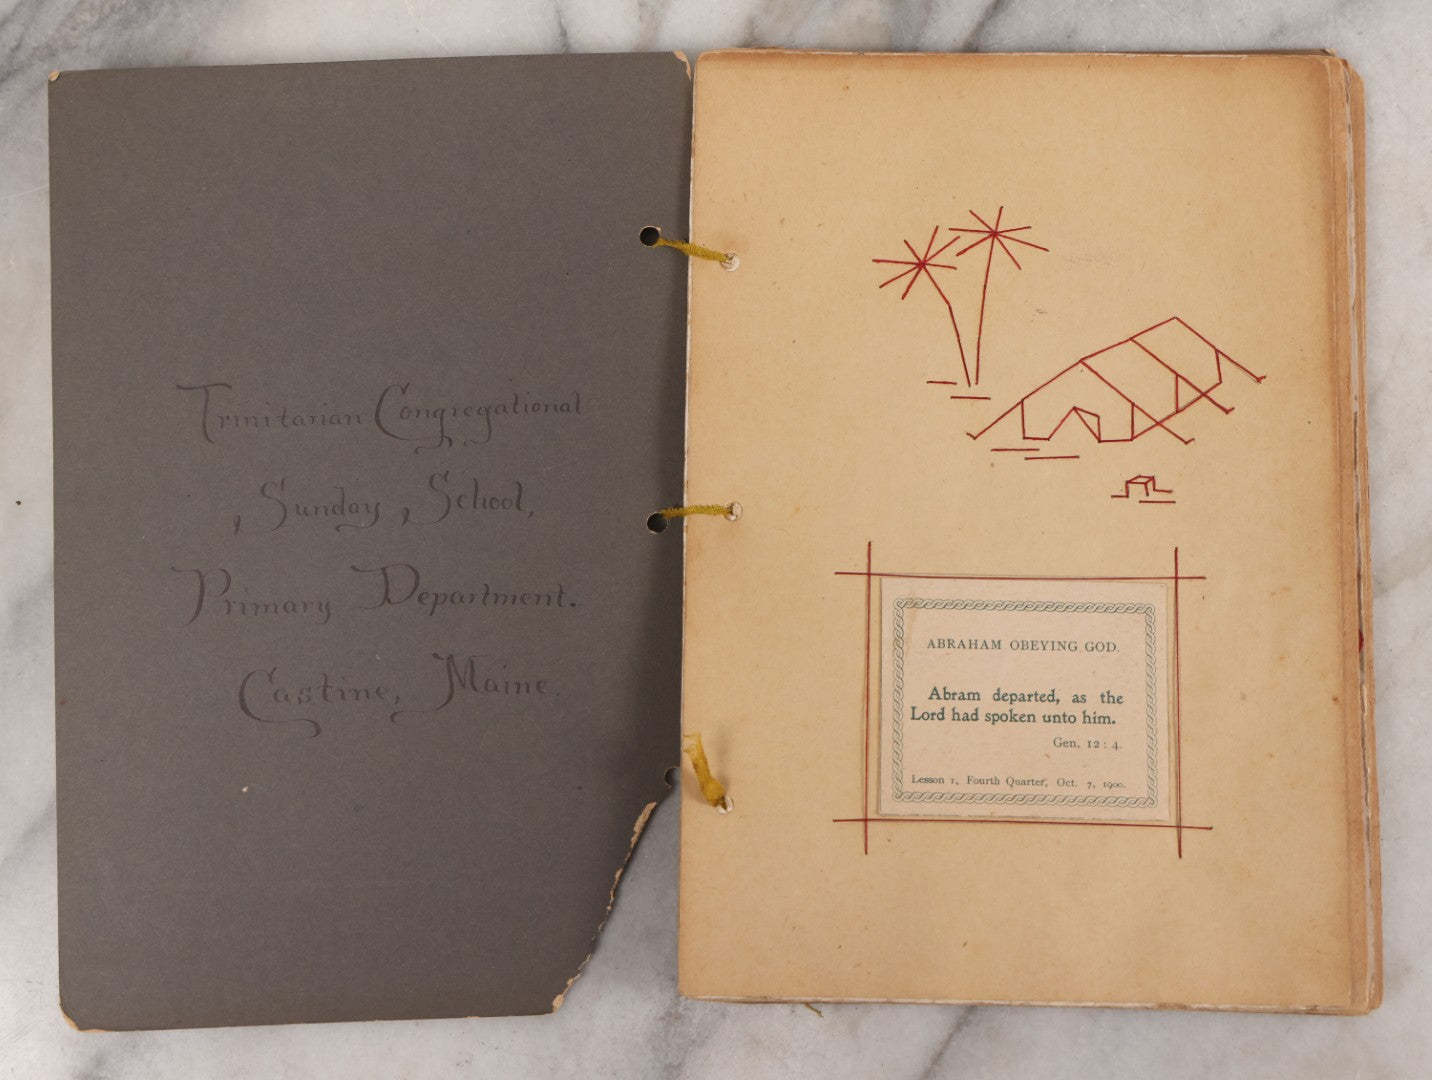 Trinitarian Congregational
Sunday School,
Primary Department.
Castine, Maine.
ABRAHAM OBEYING GOD.
Abram departed, as the
Lord had spoken unto him.
Gen. 12 : 4.
Lesson 1, Fourth Quarter, Oct. 7, 1900.